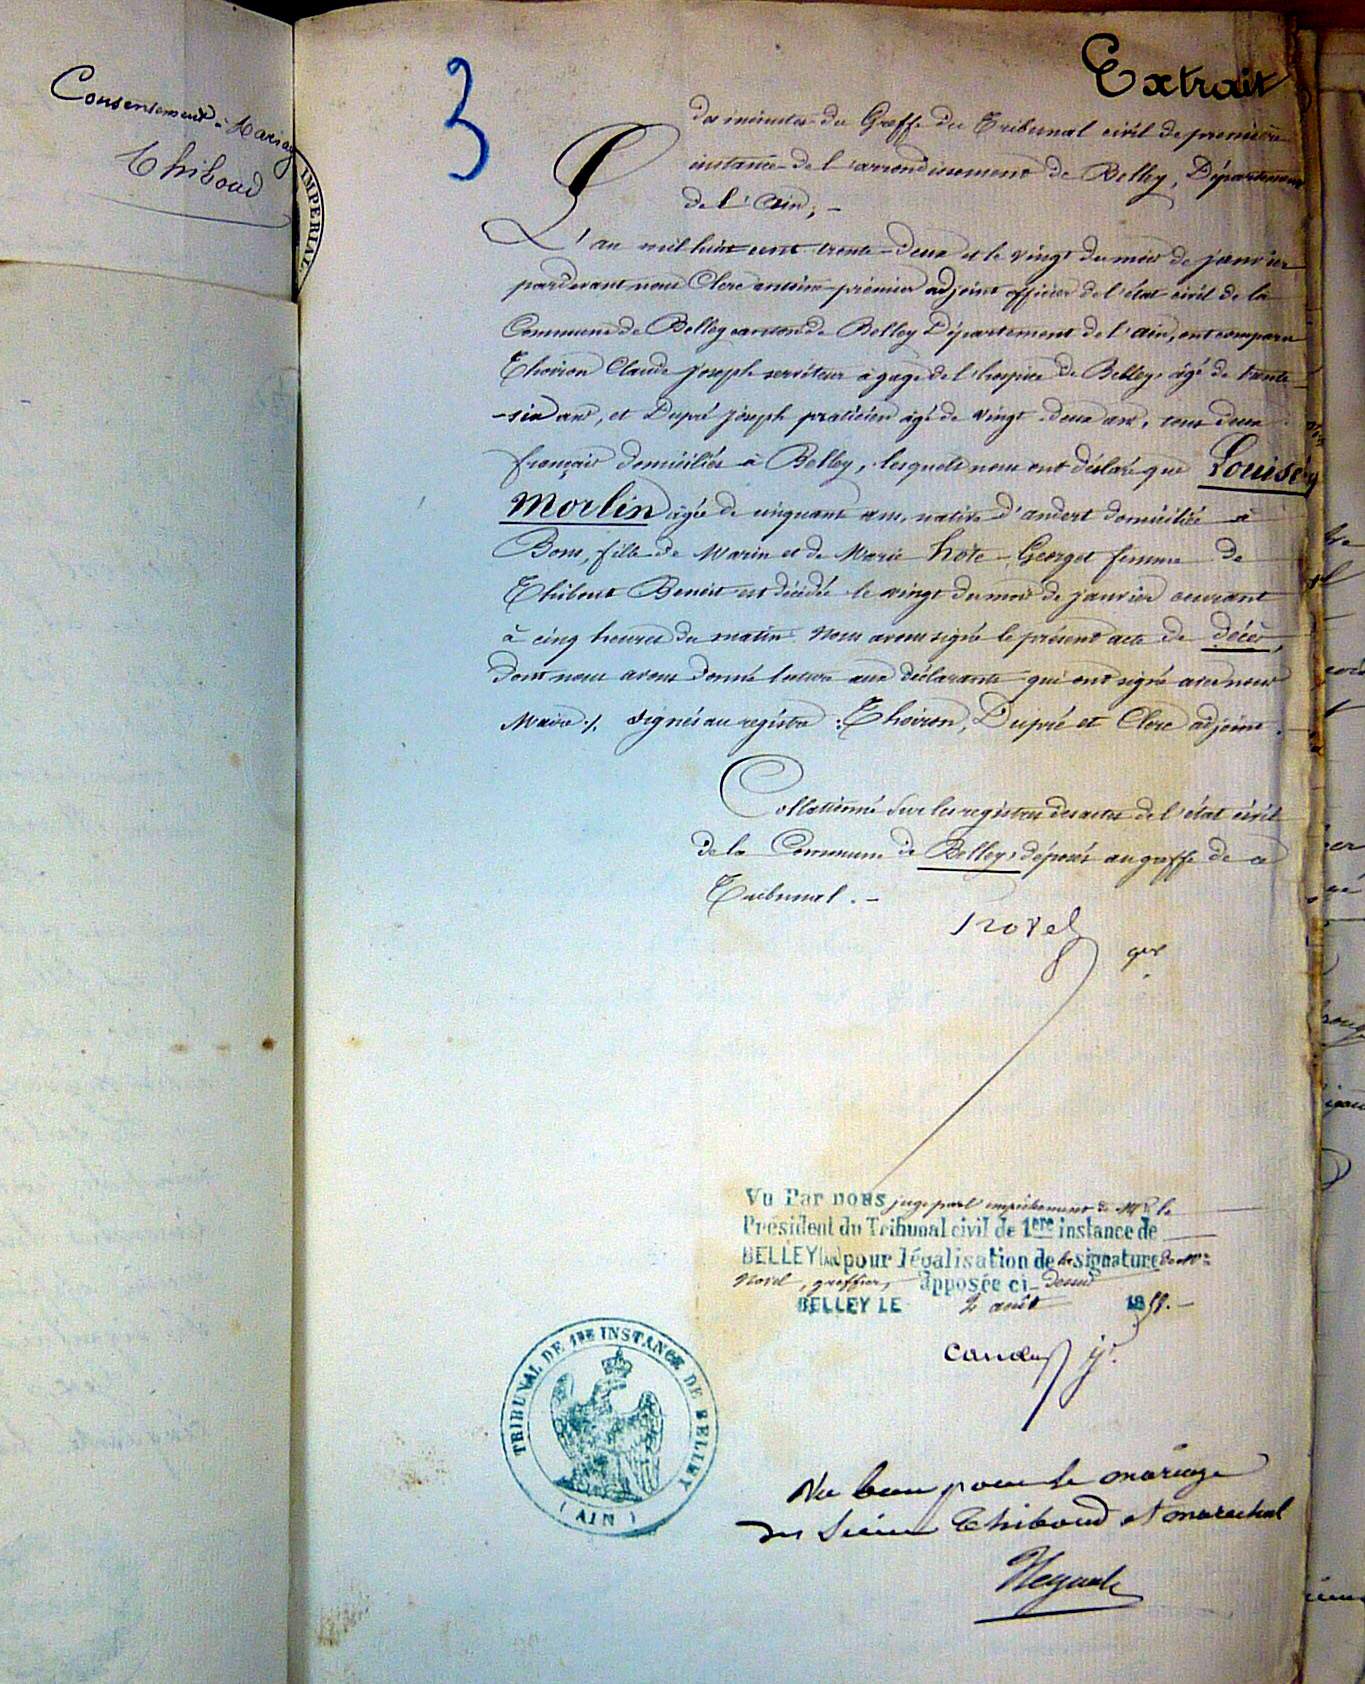 Consensement à Mariage
Thiboud
IMPERIAL
3
Extrait
des minutes du Greffe du Tribunal civil de première
instance de l'arrondissement de Belley, Département
de l'Ain; -
L'an mil huit cent trente-deux et le vingt du mois de janvier
pardevant nous Clerc antoine premier adjoint officier de l'état civil de la
Commune de Belley canton de Belley Département de l'ain, ont comparu
Thoiron Claude joseph serviteur à gage de l'hospice de Belley, âgé de trente
-six ans, et Dupré joseph praticien âgé de vingt deux ans, tous deux
français domiciliés à Belley, lesquels nous ont déclaré que Louise
Morlin âgée de cinquante ans, native d'andert domiciliée à
Bons, fille de Marin et de Marie hote-Georget femme de
Thibout Benoit est décédée le vingt du mois de janvier courant
à cinq heures du matin. Nous avons signé le présent acte de décès,
dont nous avons donné lecture aux déclarants qui ont signé avec nous
Maire ./. signés au registre : Thoiron, Dupré et Clerc adjoint.
Collationné sur les registres des actes de l'état civil
de la Commune de Belley, déposés au greffe de ce
Tribunal. -
Novel
ger
Vu Par nous juge par l'empêchement de Mr le
Président du Tribunal civil de 1ere instance de
BELLEY (AIN) pour légalisation de la signature de Mr
Novel, greffier, apposée ci-dessus
BELLEY LE 2 août 1859. -
TRIBUNAL DE 1RE INSTANCE DE BELLEY
(AIN)
Vu bon pour le mariage
des sieur Thiboud et marechal